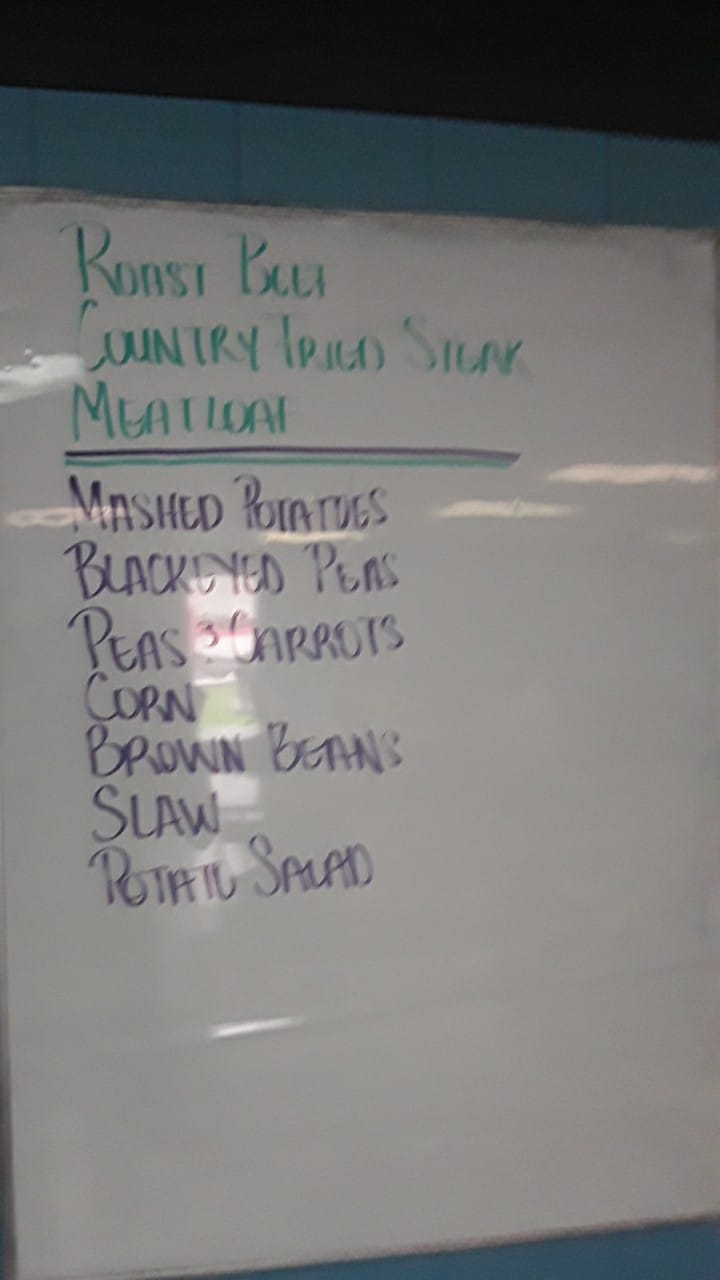 ROAST BEEF
COUNTRY FRIED STEAK
MEATLOAF
MASHED POTATOES
BLACKEYED PEAS
PEAS & CARROTS
CORN
BROWN BEANS
SLAW
POTATO SALAD